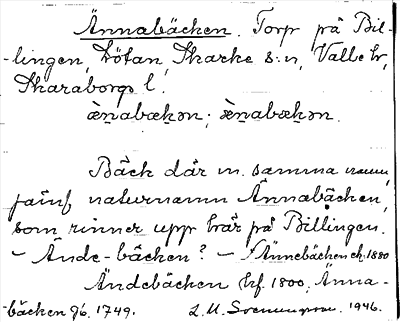 Ännabäcken. Torp på Bil-
lingen, Löfan, Skarke s:n, Valle hr,
Skaraborgs l.
æ̀nabækən; æ̀nabækən.
Bäck där m. samma namn,
jämf. naturnamn Ännabäcken,
som rinner upp här på Billingen.
– Ände-bäcken? – Ännebäcken ek. 1880
Ändebäcken hf. 1800, Änna-
bäcken gb. 1749. 1946.